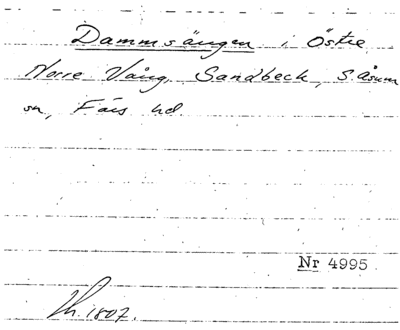 Dammsängen i Östre
Norre Vång, Sandbeck, S Åsum
sn, Färs hd
Nr 4995
Th. 1807.